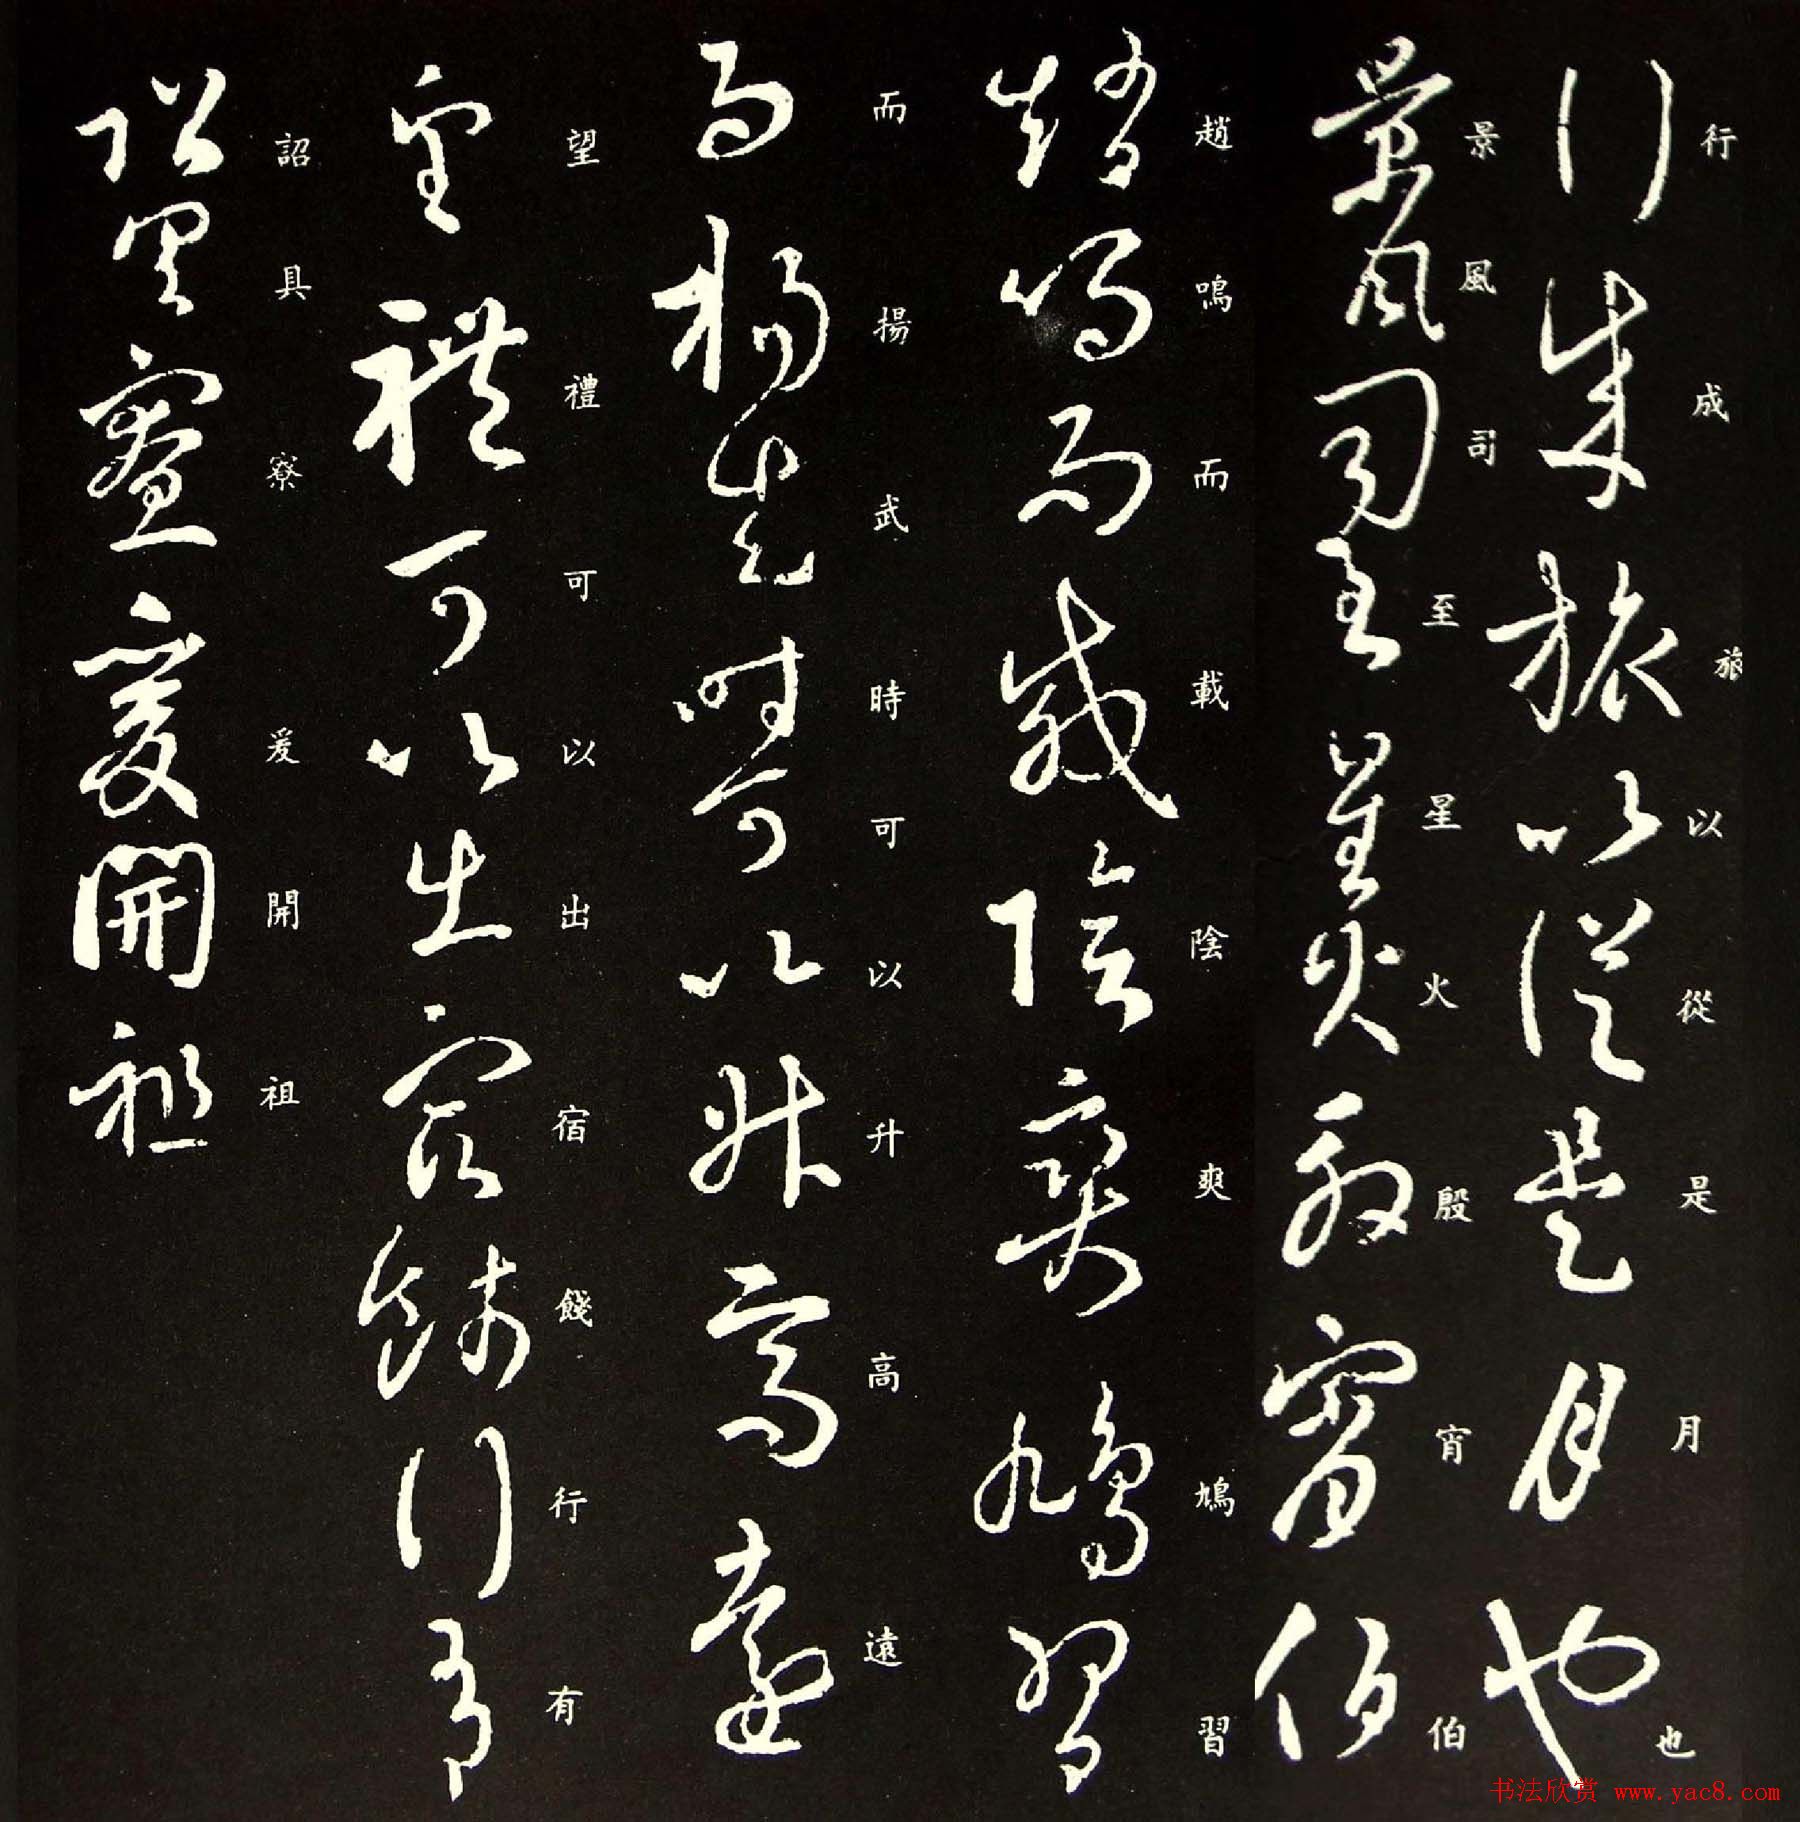 行成旅以從是月也
景風司至星火殷宵伯
趙鳴而載陰爽鳩習
而揚武時可以升高遠
望禮可以出宿餞行有
詔具寮爰開祖
书法欣赏 www.yac8.com